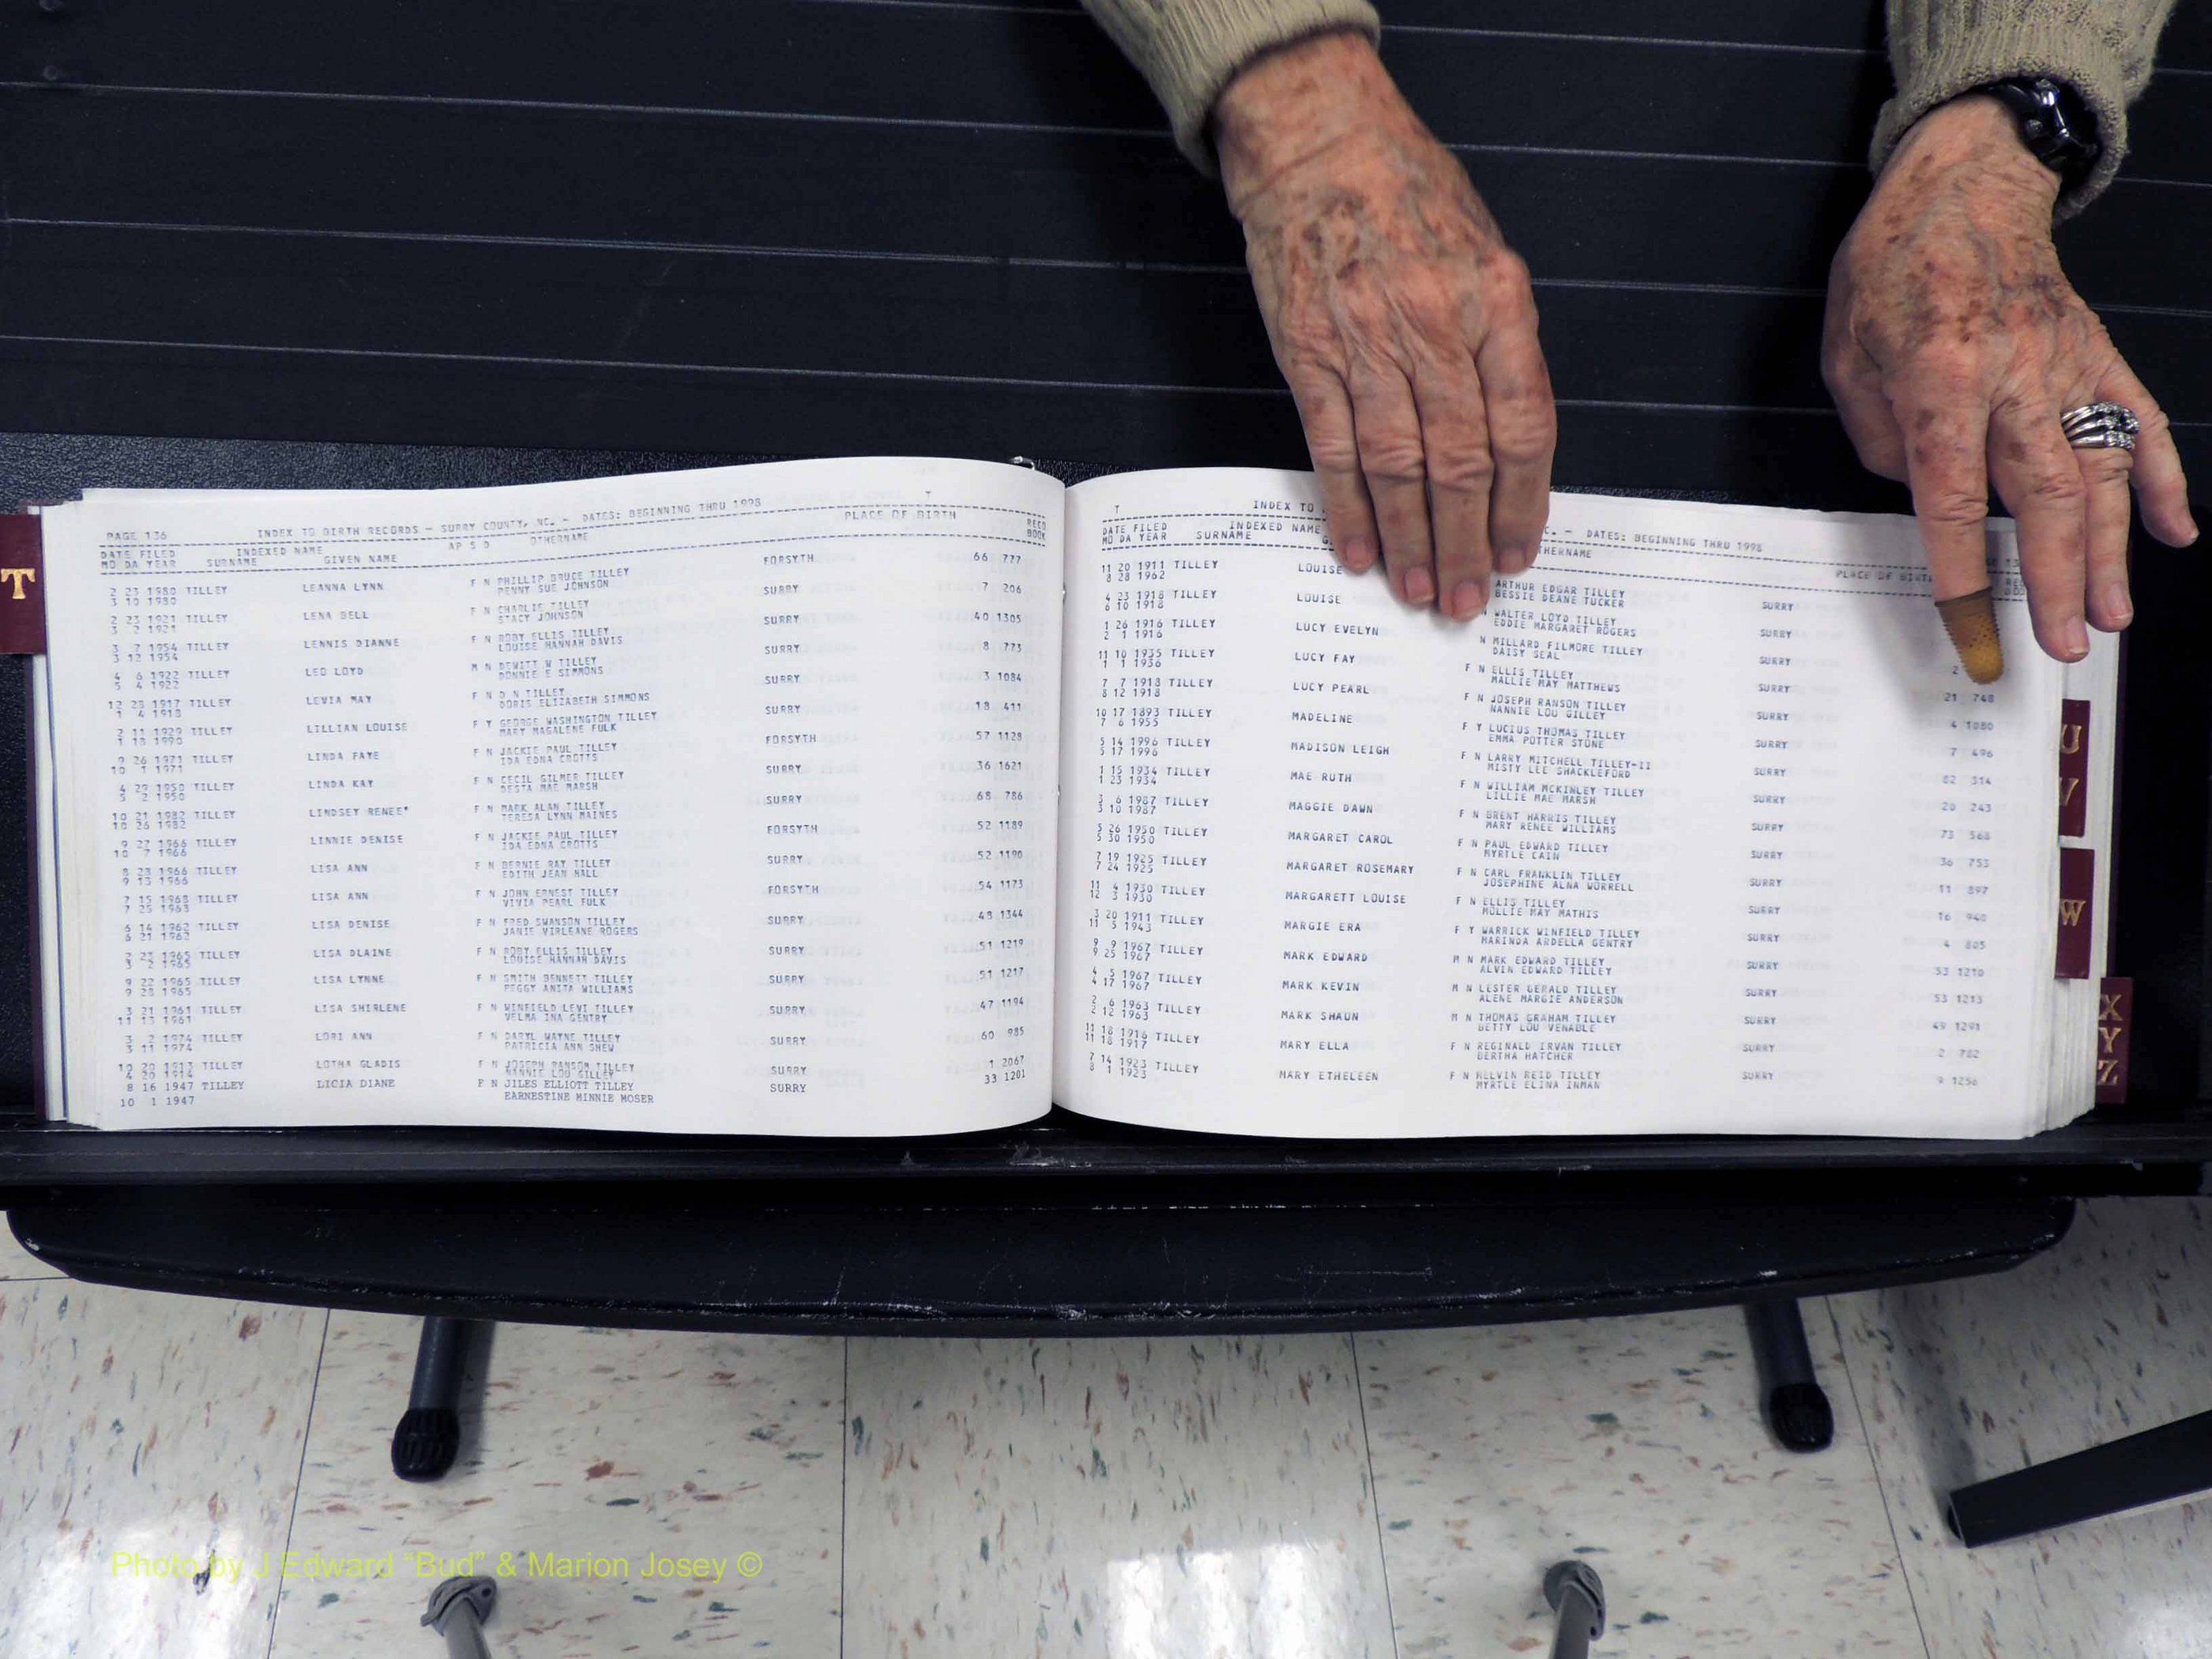 T
PAGE 136 INDEX TO BIRTH RECORDS - SURRY COUNTY, NC. - DATES: BEGINNING THRU 1998 T
DATE FILED INDEXED NAME AP S D OTHERNAME PLACE OF BIRTH RECO
MO DA YEAR SURNAME GIVEN NAME BOOK
2 23 1980 TILLEY LEANNA LYNN F N PHILLIP BRUCE TILLEY FORSYTH 66 777
3 10 1980 PENNY SUE JOHNSON
2 23 1921 TILLEY LENA BELL F N CHARLIE TILLEY SURRY 7 206
3 2 1921 STACY JOHNSON
3 7 1954 TILLEY LENNIS DIANNE F N ROBY ELLIS TILLEY SURRY 40 1305
3 12 1954 LOUISE HANNAH DAVIS
4 6 1922 TILLEY LEO LOYD M N DEWITT W TILLEY SURRY 8 773
5 4 1922 DONNIE E SIMMONS
12 23 1917 TILLEY LEVIA MAY F N D N TILLEY SURRY 3 1084
1 4 1918 DORIS ELIZABETH SIMMONS
2 11 1929 TILLEY LILLIAN LOUISE F Y GEORGE WASHINGTON TILLEY SURRY 18 411
1 18 1990 MARY MAGALENE FULK
9 26 1971 TILLEY LINDA FAYE F N JACKIE PAUL TILLEY FORSYTH 57 1128
10 1 1971 IDA EDNA CROTTS
4 29 1950 TILLEY LINDA KAY F N CECIL GILMER TILLEY SURRY 36 1621
5 2 1950 DESTA MAE MARSH
10 21 1982 TILLEY LINDSEY RENEE* F N MARK ALAN TILLEY SURRY 68 786
10 26 1982 TERESA LYNN MAINES
9 27 1966 TILLEY LINNIE DENISE F N JACKIE PAUL TILLEY FORSYTH 52 1189
10 7 1966 IDA EDNA CROTTS
8 28 1966 TILLEY LISA ANN F N BERNIE RAY TILLEY SURRY 52 1190
9 13 1966 EDITH JEAN HALL
7 15 1968 TILLEY LISA ANN F N JOHN ERNEST TILLEY FORSYTH 54 1173
7 25 1968 VIVIA PEARL FULK
6 14 1962 TILLEY LISA DENISE F N FRED SWANSON TILLEY SURRY 48 1344
6 21 1962 JANIE VIRLEANE ROGERS
2 23 1965 TILLEY LISA DLAINE F N ROBY ELLIS TILLEY SURRY 51 1219
3 2 1965 LOUISE HANNAH DAVIS
9 22 1965 TILLEY LISA LYNNE F N SMITH BENNETT TILLEY SURRY 51 1217
9 28 1965 PEGGY ANITA WILLIAMS
3 21 1961 TILLEY LISA SHIRLENE F N WINFIELD LEVI TILLEY SURRY 47 1194
11 13 1961 VELMA INA GENTRY
3 2 1974 TILLEY LORI ANN F N DARYL WAYNE TILLEY SURRY 60 985
3 11 1974 PATRICIA ANN SHEW
10 20 1913 TILLEY LOTHA GLADIS F N JOSEPH RANSON TILLEY SURRY 1 2067
4 20 1914 NANNIE LOU GILLEY
8 16 1947 TILLEY LICIA DIANE F N JILES ELLIOTT TILLEY SURRY 33 1201
10 1 1947 EARNESTINE MINNIE MOSER
T INDEX TO C. - DATES: BEGINNING THRU 1998
DATE FILED INDEXED NAME THERNAME PLACE OF BIRTH
MO DA YEAR SURNAME
11 20 1911 TILLEY LOUISE ARTHUR EDGAR TILLEY SURRY
8 28 1962 BESSIE DEANE TUCKER
4 23 1918 TILLEY LOUISE WALTER LOYD TILLEY SURRY
6 10 1918 EDDIE MARGARET ROGERS
1 26 1916 TILLEY LUCY EVELYN N MILLARD FILMORE TILLEY SURRY 2
2 1 1916 DAISY SEAL
11 10 1935 TILLEY LUCY FAY F N ELLIS TILLEY SURRY 21 748
1 1 1936 MALLIE MAY MATTHEWS
7 7 1918 TILLEY LUCY PEARL F N JOSEPH RANSON TILLEY SURRY 4 1080
8 12 1918 NANNIE LOU GILLEY
10 17 1893 TILLEY MADELINE F Y LUCIUS THOMAS TILLEY SURRY 7 496
7 6 1955 EMMA POTTER STONE
5 14 1996 TILLEY MADISON LEIGH F N LARRY MITCHELL TILLEY-II SURRY 82 314
5 17 1996 MISTY LEE SHACKLEFORD
1 15 1934 TILLEY MAE RUTH F N WILLIAM MCKINLEY TILLEY SURRY 20 243
1 23 1934 LILLIE MAE MARSH
3 6 1987 TILLEY MAGGIE DAWN F N BRENT HARRIS TILLEY SURRY 73 568
3 10 1987 MARY RENEE WILLIAMS
5 26 1950 TILLEY MARGARET CAROL F N PAUL EDWARD TILLEY SURRY 36 753
5 30 1950 MYRTLE CAIN
7 19 1925 TILLEY MARGARET ROSEMARY F N CARL FRANKLIN TILLEY SURRY 11 897
7 24 1925 JOSEPHINE ALNA WORRELL
11 4 1930 TILLEY MARGARETT LOUISE F N ELLIS TILLEY SURRY 16 940
12 3 1930 MOLLIE MAY MATHIS
3 20 1911 TILLEY MARGIE ERA F Y WARRICK WINFIELD TILLEY SURRY 4 805
11 5 1943 MARINDA ARDELLA GENTRY
9 9 1967 TILLEY MARK EDWARD M N MARK EDWARD TILLEY SURRY 53 1210
9 25 1967 ALVIN EDWARD TILLEY
4 5 1967 TILLEY MARK KEVIN M N LESTER GERALD TILLEY SURRY 53 1213
4 17 1967 ALENE MARGIE ANDERSON
2 6 1963 TILLEY MARK SHAUN M N THOMAS GRAHAM TILLEY SURRY 49 1291
2 12 1963 BETTY LOU VENABLE
11 18 1916 TILLEY MARY ELLA F N REGINALD IRVAN TILLEY SURRY 2 782
11 18 1917 BERTHA HATCHER
7 14 1923 TILLEY MARY ETHELEEN F N MELVIN REID TILLEY SURRY 9 1256
8 1 1923 MYRTLE ELINA INMAN
U
V
W
X
Y
Z
Photo by J Edward “Bud” & Marion Josey ©